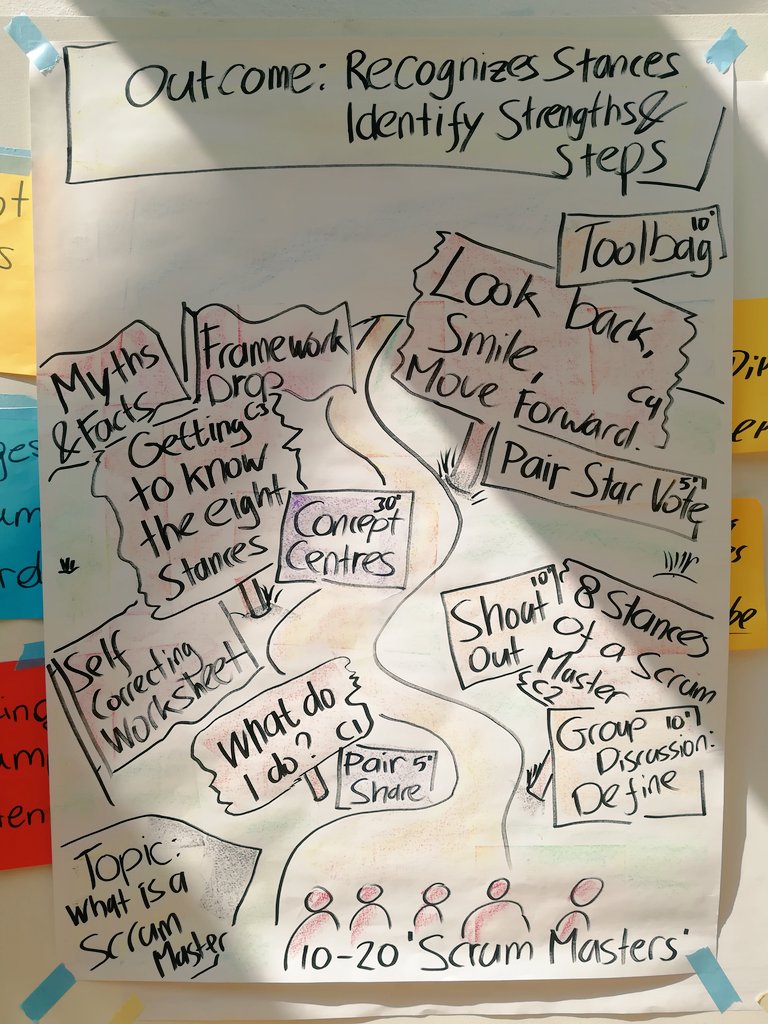 Outcome: Recognizes Stances
Identify Strengths &
Steps
Toolbag 10"
Look back,
Smile,
Move Forward.
C4
Pair Star Vote 5"
Myths
& Facts
Framework
Drop
Getting C3
to know
the eight
Stances
Concept 30"
Centres
Shout 10"
Out
8 Stances
Of a Scrum
Master
C2
Group 10"
Discussion:
Define
Self
Correcting
Worksheet
What do
I do? C1
Pair 5"
Share
Topic:
What is a
Scrum
Master
10-20 'Scrum Masters'
ot
s
ges
um
rd
ing
um
ten
Di
er
s
es
be